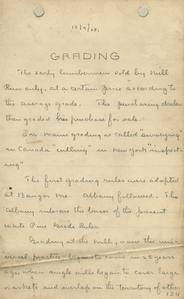 GRADING
"The early lumbermen sold by Mill
Run only, at a certain price according to
the average grade. The purchasing dealer
then graded his purchase for sale.
In Maine grading is called "surveying"
in Canada "culling" in New York "inspect-
ing"
The first grading rules were adopted
at Bangor Me. Albany followed. The
Albany rules are the basis of the present
White Pine Grade Rules.
Grading at the mill, now the uni-
versal practice, began to come in 25 years
ago when single mills began to cover large
markets and overlap on the territory of other